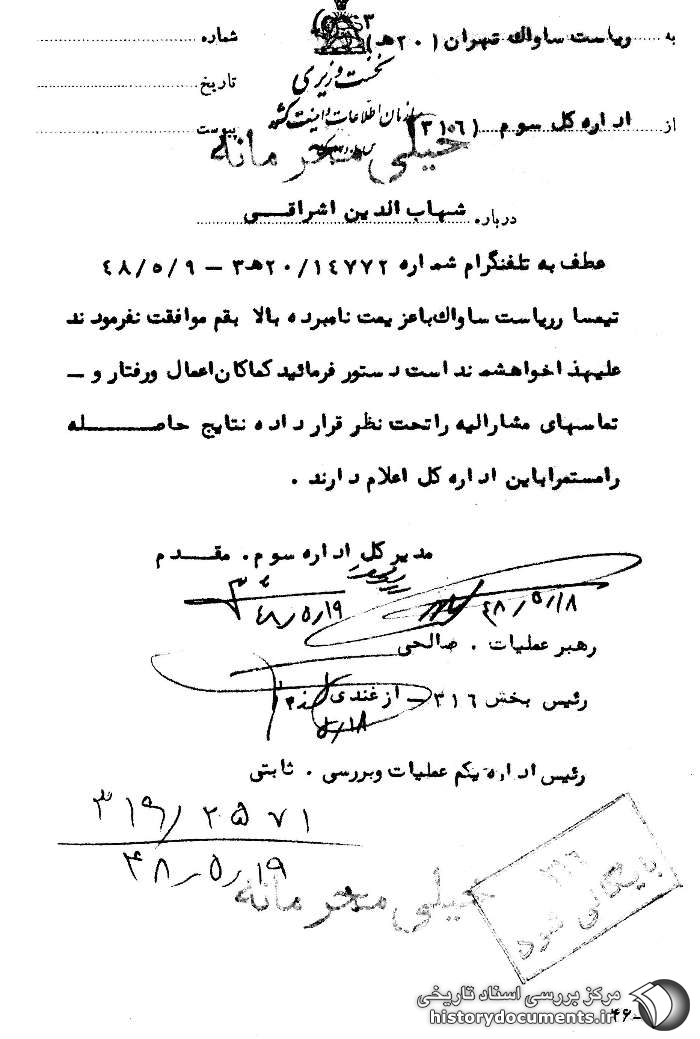 به ریاست ساواک تهران (۲۰هـ۳)
شماره
نخست وزیری
تاریخ
سازمان اطلاعات و امنیت کشور
از اداره کل سوم (۳۱۶)
پیوست
خیلی محرمانه
درباره شهاب الدین اشراقی
عطف به تلفنگرام شماره ۲۰/۱۴۷۷۲هـ۳ – ۴۸/۵/۹
تیمسار ریاست ساواک باعزیمت نامبرده بالا بقم موافقت نفرمودند
علیهذا خواهشمند است دستور فرمائید کماکان اعمال ورفتار و –
تماسهای مشارالیه راتحت نظر قرار داده نتایج حاصله
رامستمرا باین اداره کل اعلام دارند .
مدیر کل اداره سوم . مقدم
۴۸/۵/۱۸
۴۸/۵/۱۹
رهبر عملیات . صالحی
رئیس بخش ۳۱۶ – ازغندی
۵/۱۸
رئیس اداره یکم عملیات وبررسی . ثابتی
۳۱۹/۲۵۷۱
۴۸/۵/۱۹
خیلی محرمانه
۳۱۶
بایگانی شود
مرکز بررسی اسناد تاریخی
historydocuments.ir